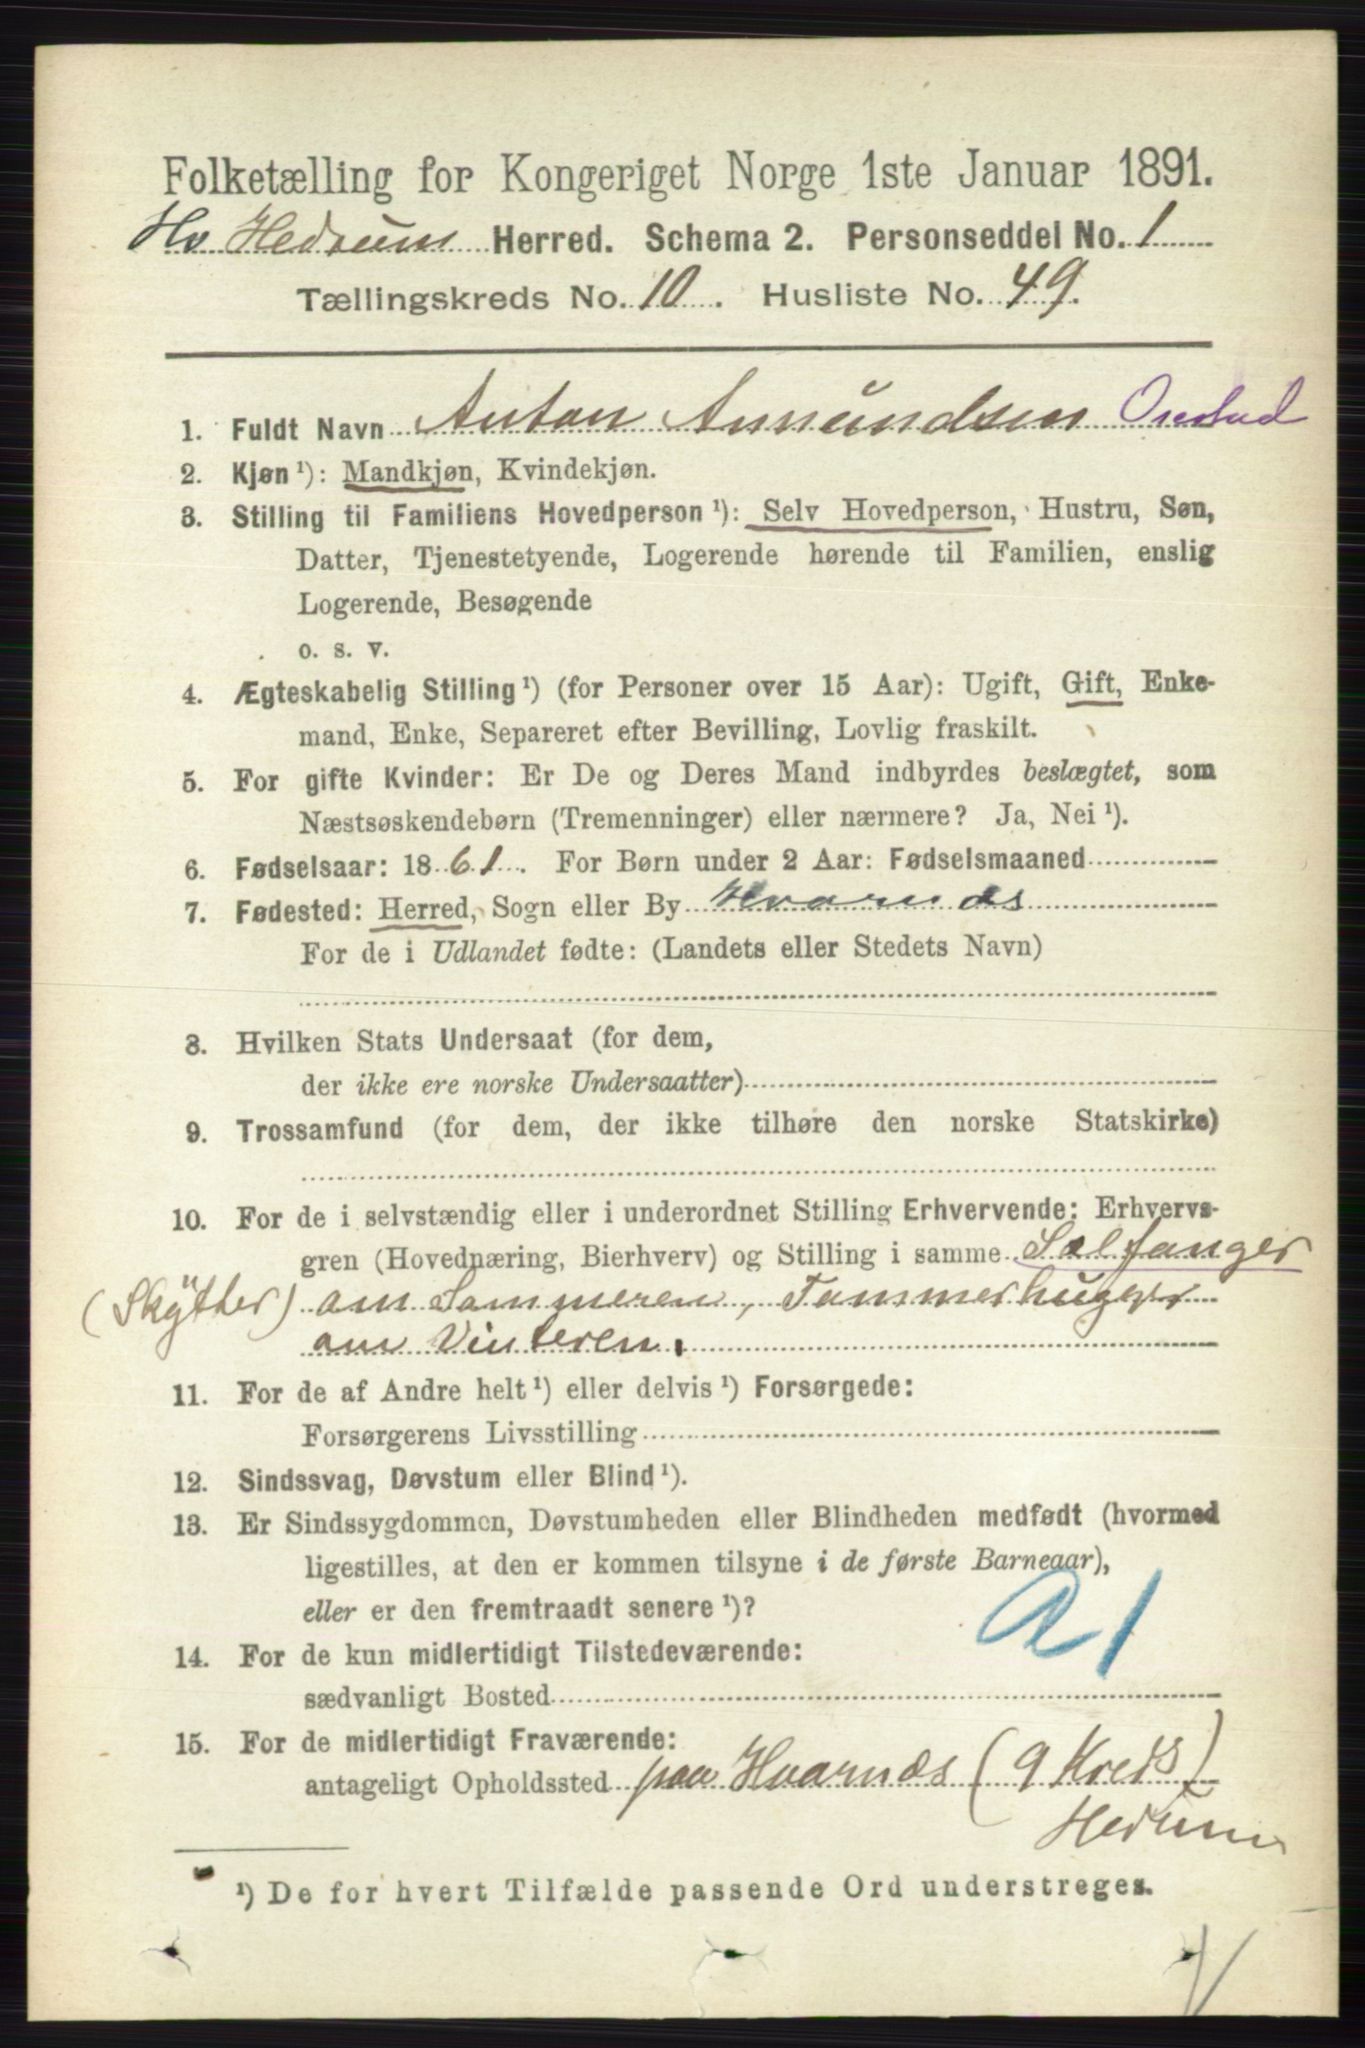 Folketælling for Kongeriget Norge 1ste Januar 1891.
Hv Hedrum Herred. Schema 2. Personseddel No. 1
Tællingskreds No. 10. Husliste No. 49.
1. Fuldt Navn Anton Amundsen
2. Kjøn ¹): Mandkjøn, Kvindekjøn.
3. Stilling til Familiens Hovedperson ¹): Selv Hovedperson, Hustru, Søn,
Datter, Tjenestetyende, Logerende hørende til Familien, enslig
Logerende, Besøgende
o. s. v.
4. Ægteskabelig Stilling ¹) (for Personer over 15 Aar): Ugift, Gift, Enke-
mand, Enke, Separeret efter Bevilling, Lovlig fraskilt.
5. For gifte Kvinder: Er De og Deres Mand indbyrdes beslægtet, som
Næstsøskendebørn (Tremenninger) eller nærmere? Ja, Nei ¹).
6. Fødselsaar: 1861. For Børn under 2 Aar: Fødselsmaaned
7. Fødested: Herred, Sogn eller By Hvarnæs
For de i Udlandet fødte: (Landets eller Stedets Navn)
8. Hvilken Stats Undersaat (for dem,
der ikke ere norske Undersaatter)
9. Trossamfund (for dem, der ikke tilhøre den norske Statskirke)
10. For de i selvstændig eller i underordnet Stilling Erhvervende: Erhvervs-
gren (Hovednæring, Bierhverv) og Stilling i samme Sælfanger
(Skÿtter) om Sommeren, Tømmerhugger
om Vinteren.
11. For de af Andre helt ¹) eller delvis ¹) Forsørgede:
Forsørgerens Livsstilling
12. Sindssvag, Døvstum eller Blind ¹).
13. Er Sindssygdommen, Døvstumheden eller Blindheden medfødt (hvormed
ligestilles, at den er kommen tilsyne i de første Barneaar),
eller er den fremtraadt senere ¹)?
14. For de kun midlertidigt Tilstedeværende:
sædvanligt Bosted
15. For de midlertidigt Fraværende:
antageligt Opholdssted paa Hvarnæs (9 Kreds)
Hedrum
¹) De for hvert Tilfælde passende Ord understreges.